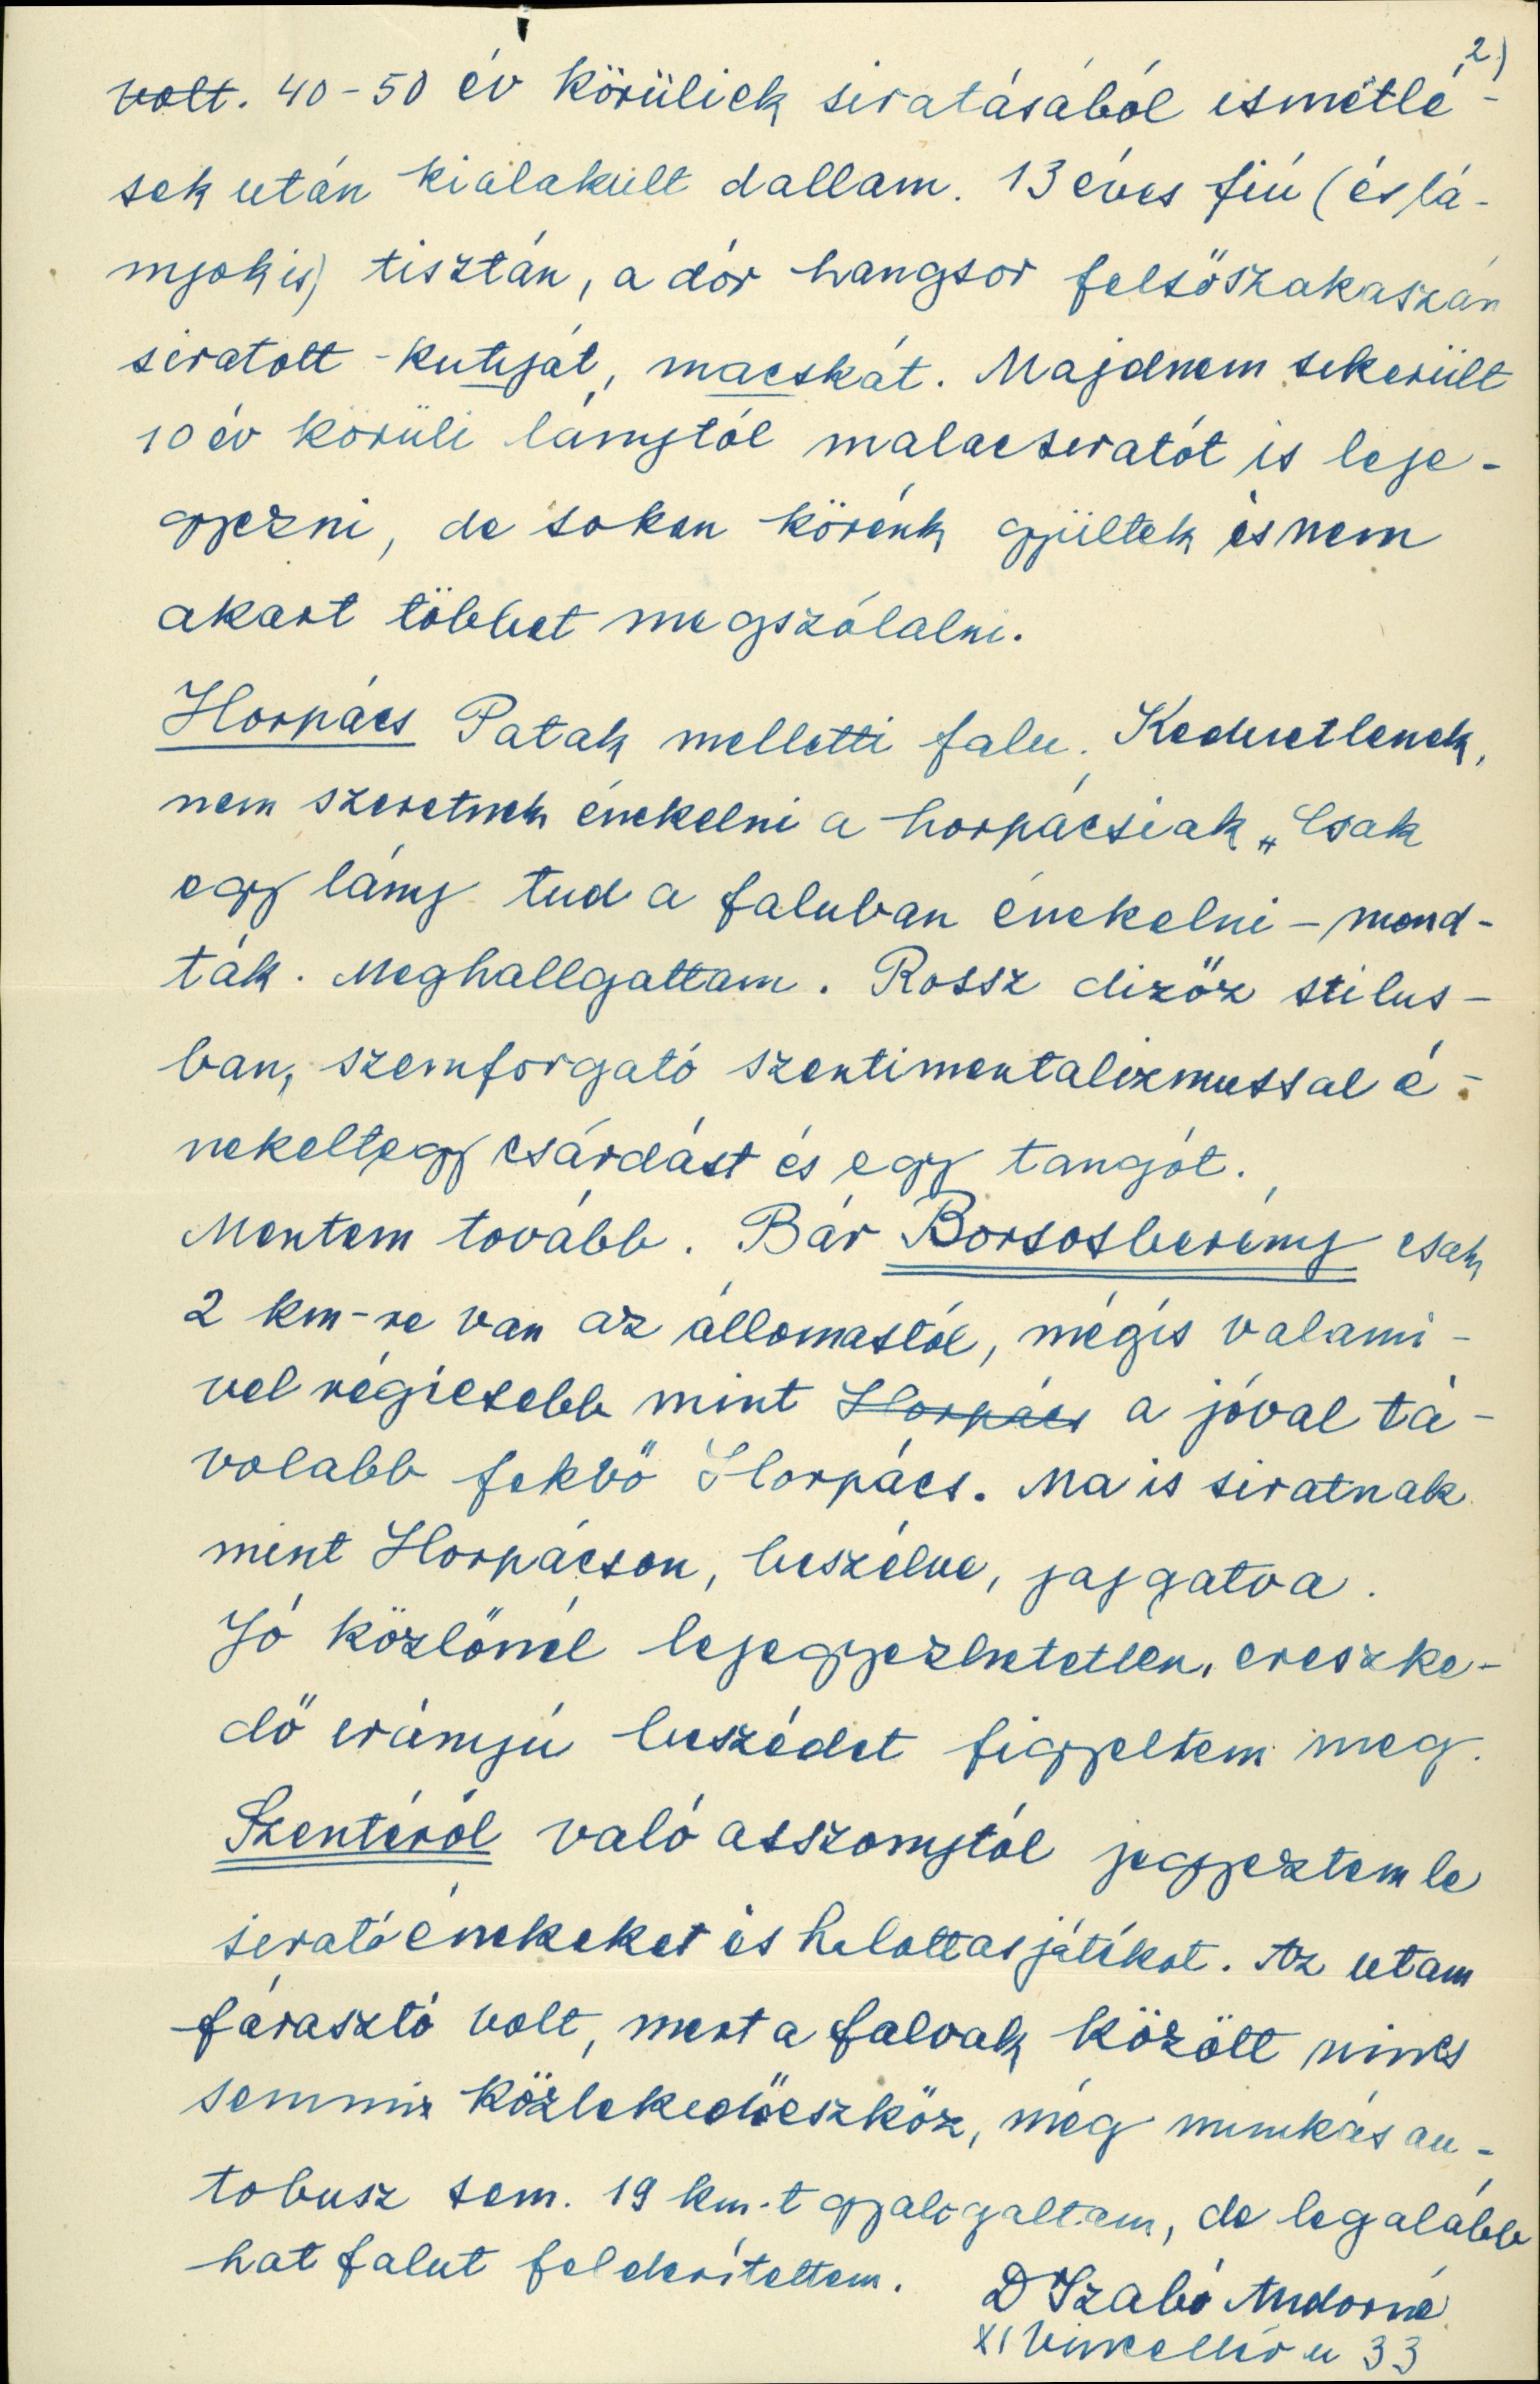 2)
volt. 40-50 év körüliek siratásából ismétlé-
sek után kialakult dallam. 13 éves fiú (és lá-
nyok is) tisztán, a dór hangsor felsőszakaszán
siratott - kutyát, macskát. Majdnem sikerült
10 év körüli lánytól malacsiratót is leje-
gyezni, de sokan körénk gyültek és nem
akart többet megszólalni.
Horpács Patak melletti falu. Kedvetlenek,
nem szeretnek énekelni a horpácsiak „Csak
egy lány tud a faluban énekelni – mond-
ták. Meghallgattam. Rossz dizőz stilus-
ban, szemforgató szentimentalizmussal é-
nekelt egy csárdást és egy tangót.
Mentem tovább. Bár Borsosberény csak
2 km-re van az állomástól, mégis valami-
vel régiesebb mint Horpács a jóval tá-
volabb fekvő Horpács. Ma is siratnak
mint Horpácson, beszélve, jajgatva.
Jó közlőnél lejegyezhetetlen, ereszke-
dő irányú beszédet figyeltem meg.
Szentéről való asszonytól jegyeztem le
siratóénekeket és halottas játékot. Az utam
fárasztó volt, mert a falvak között nincs
semmi közlekedőeszköz, még munkás au-
tobusz sem. 19 km-t gyalogaltam, de legalább
hat falut felderítettem.
D Szabó Andorné
XI Vincellér u 33